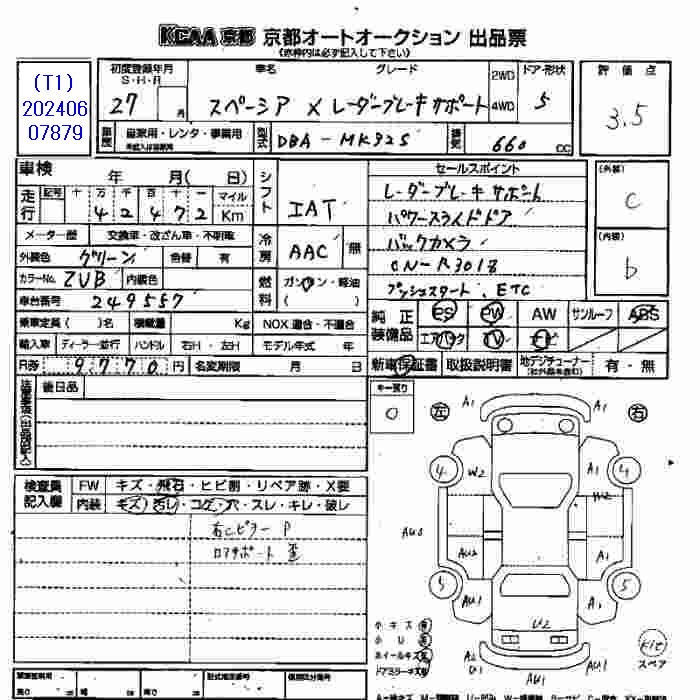 KCAA京都 京都オートオークション 出品票
(赤枠内は必ず記入して下さい)
(T1)
202406
07879
初度登録年月
S・H・R
27 月
車名
グレード
スペーシア X レーダーブレーキサポート
2WD
4WD
ドア・形状
5
評価点
3.5
車歴
自家用・レンタ・事業用
型式
DBA-MK32S
排気
660 CC
車検
年 月( 日)
シフト
IAT
セールスポイント
レーダーブレーキサポート
パワースライドドア
バックカメラ
CN-R301S
プッシュスタート、ETC
(外装)
C
(内装)
b
走行
記号 十 万 千 百 十 一
42472
マイル
Km
メーター歴
交換車・改ざん車・不明車
冷房
AAC
無
外装色 グリーン
色替 有
カラーNo. ZVB
内装色
燃料
ガソリン・軽油
( )
車台番号 249557
純正装備品
ES PW AW サンルーフ ABS
エアバック TV ナビ
乗車定員 ( )名
積載量 Kg
NOX 適合・不適合
輸入車 ディーラー・並行
ハンドル 右H・左H
モデル年式 年
新車保証書
取扱説明書
地デジチューナー
有・無
R券 9770 円
名変期限 月 日
後日品
キー残り
0
左
右
検査員記入欄
FW
キズ・飛石・ヒビ割・リペア跡・X要
内装
キズ・汚レ・コゲ・穴・スレ・キレ・破レ
右Cピラー P
ロアサポート 歪
A1
A1
4
W2
A1
4
W2
AU3
AU2
A1
5
AU1
A1
5
U2
小キズ 有
小U 有
ホイールキズ 有
ドアミラーキズ 有
A2
U1
AU1
A1
Kit
スペア